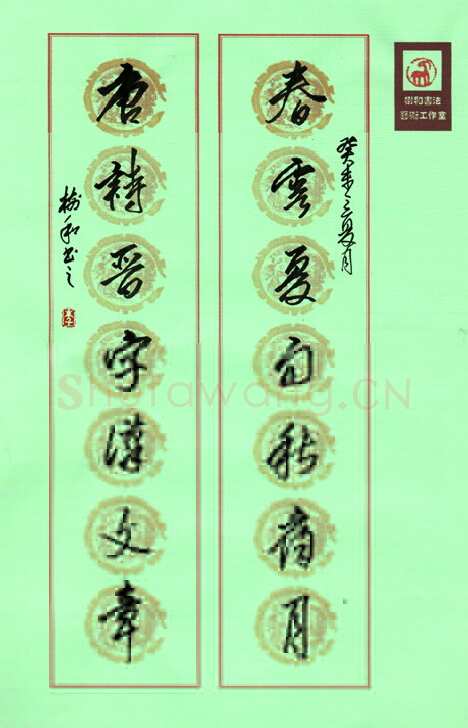 樹和書法
藝術工作室
癸未之夏月
春雲夏雨秋夜月
唐詩晉字漢文章
樹和書之
Shufawang.CN